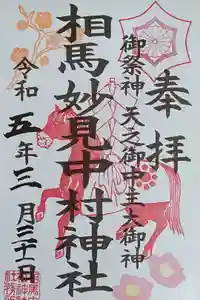 奉拝
御祭神 天之御中主大御神
相馬妙見中村神社
令和五年三月三十一日